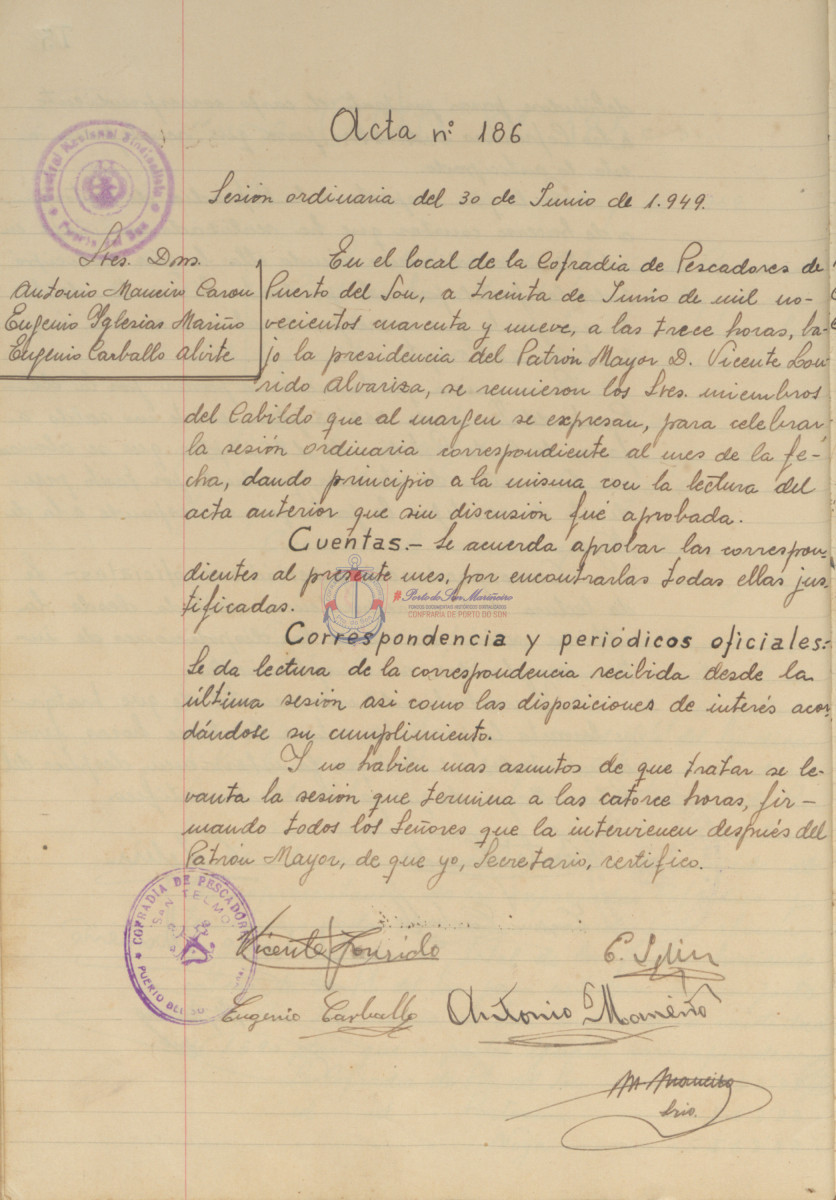 Acta nº 186
Sesión ordinaria del 30 de Junio de 1.949.
Central Nacional Sindicalista
Puerto del Son
Sres. Dons.
Antonio Maneiro Caron
Eugenio Yglesias Mariño
Eugenio Carballo Alvite
En el local de la Cofradia de Pescadores de
Puerto del Son, a treinta de Junio de mil no-
vecientos cuarenta y nueve, a las trece horas, ba-
jo la presidencia del Patrón Mayor D. Vicente Lou-
rido Alvariza, se reunieron los Sres. miembros
del Cabildo que al margen se expresan, para celebrar
la sesión ordinaria correspondiente al mes de la fe-
cha, dando principio a la misma con la lectura del
acta anterior que sin discusión fué aprobada.
Cuentas.- Se acuerda aprobar las correspon-
dientes al presente mes, por encontrarlas todas ellas jus-
tificadas.
#Porto do Son Mariñeiro
CONFRARÍA DE PORTO DO SON
Correspondencia y periódicos oficiales:-
Se da lectura de la correspondencia recibida desde la
última sesión asi como las disposiciones de interés acor-
dándose su cumplimiento.
Y no habien mas asuntos de que tratar se le-
vanta la sesión que termina a las catorce horas, fir-
mando todos los Señores que la intervienen después del
Patrón Mayor, de que yo, Secretario, certifico.
COFRADIA DE PESCADORES
SAN TELMO
PUERTO DEL SON
Vicente Lourido
Eugenio Carballo
Antonio Maneiro
M. Maneiro
Srio.